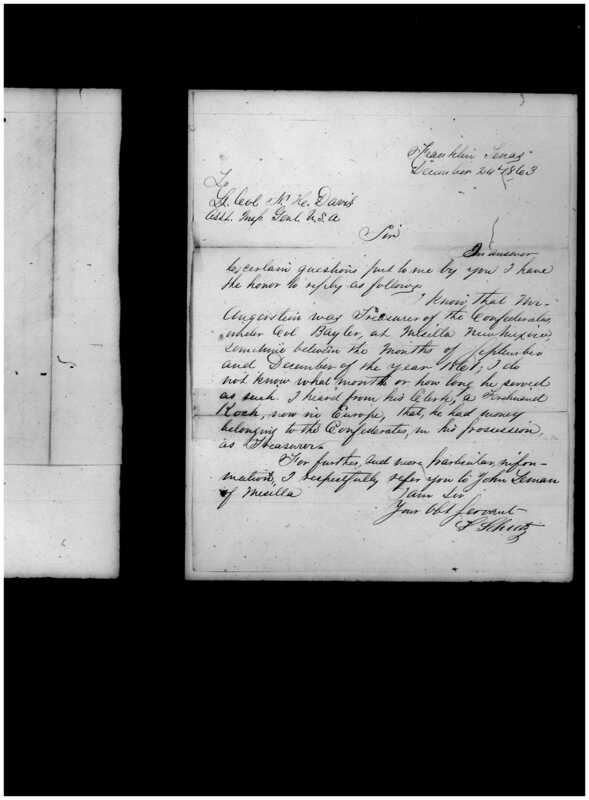 Franklin Texas
December 24th 1863
To
Lt. Col N. H. Davis
Asst. Insp. Genl. U.S.A
Sir
In answer
to certain questions put to me by you I have
the honor to reply as follows
I know, that Mr.
Angerstein was Treasurer of the Confederates,
under Col Baylor, at Mesilla New Mexico,
sometime between the months of September
and December of the year 1861; I do
not know what month or how long he served
as such. I heard from his Clerk, a Ferdinand
Koch, now in Europe, that, he had money
belonging to the Confederates, in his possession,
as Treasurer.
For further, and more particular, infor-
mation, I respectfully refer you to John Leman
of Mesilla
I am Sir
Your Obt Servant
S Schutz